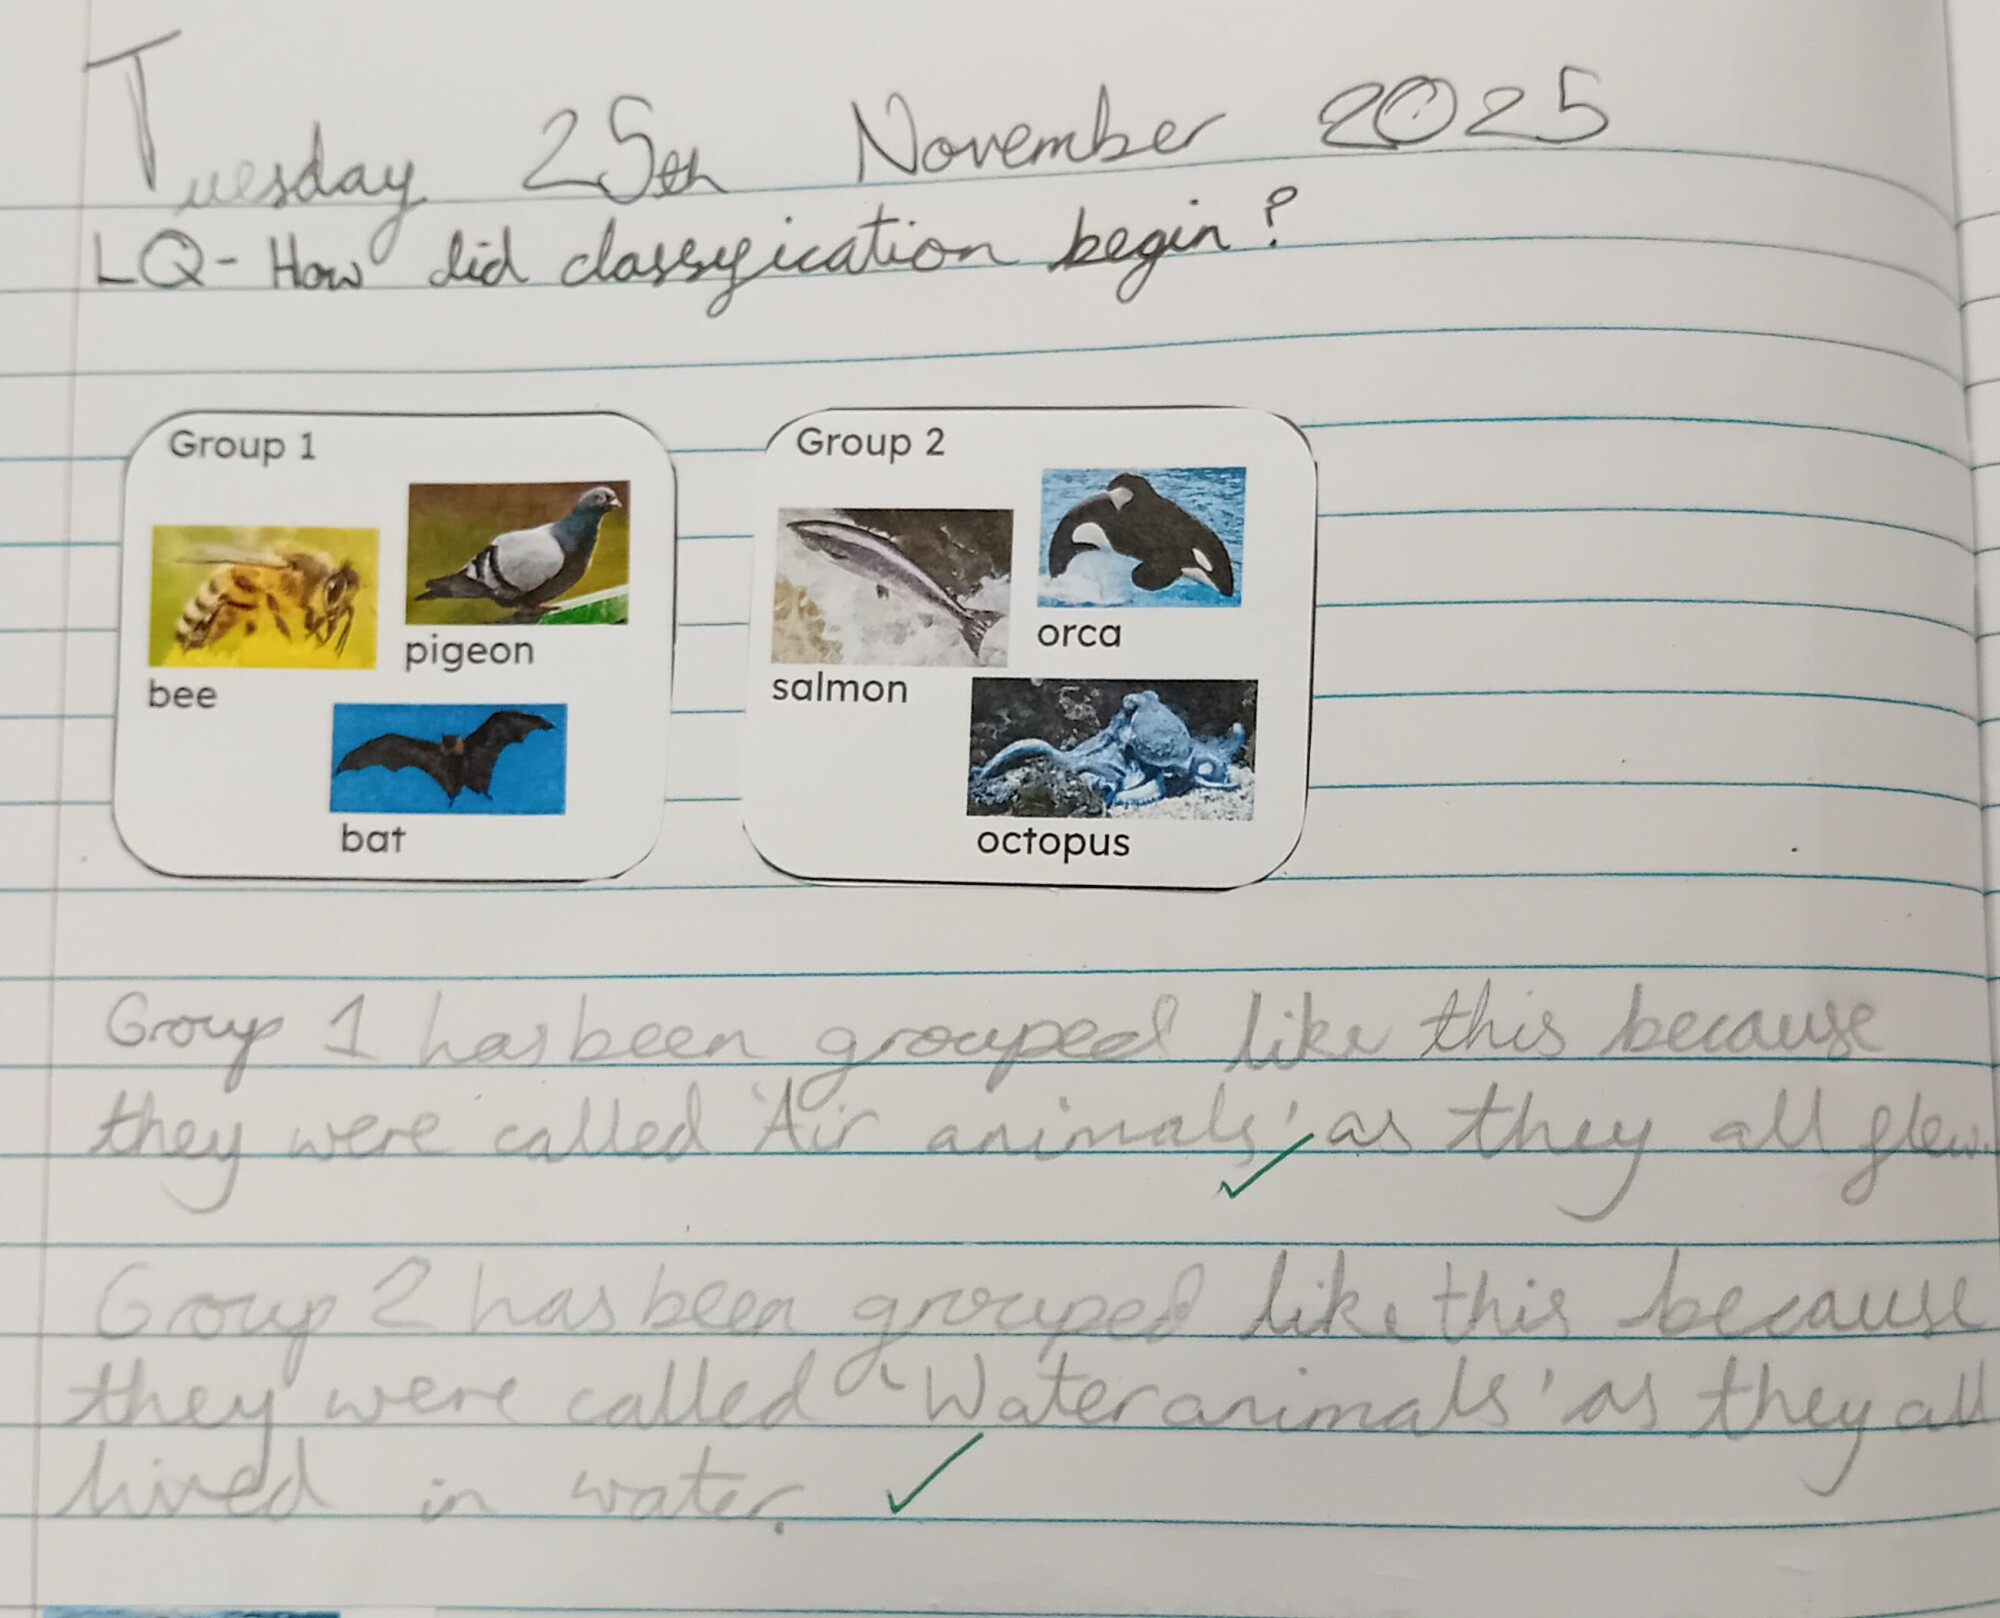 Tuesday 25th November 2025
LQ- How did classification begin?
Group 1
bee
pigeon
bat
Group 2
salmon
orca
octopus
Group 1 has been grouped like this because
they were called 'Air animals' as they all flew.
Group 2 has been grouped like this because
they were called 'Water animals' as they all
lived in water.